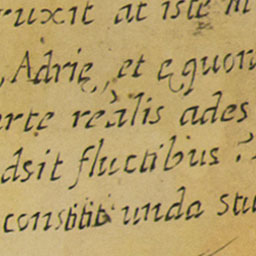 ruxit at iste
, Adrię, et ęquor
erte reális ades
dsit fluctibus ?
constitit unda stu